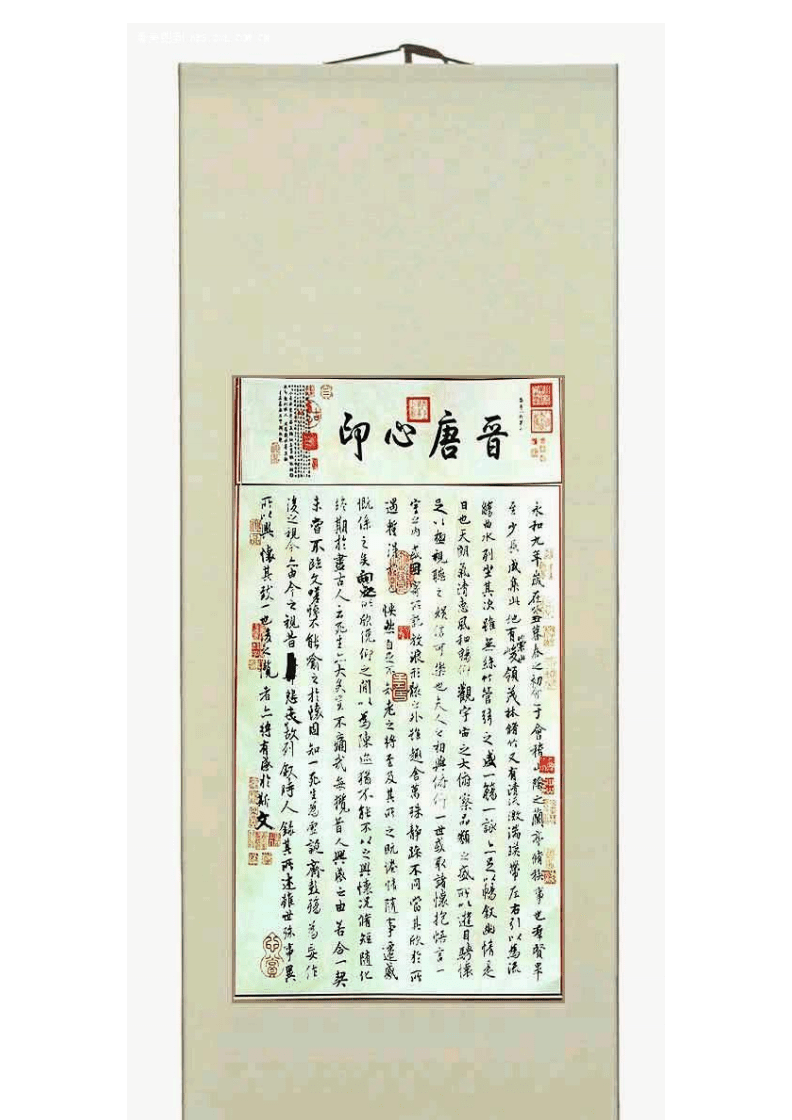 晉唐心印
永和九年歲在癸丑暮春之初會于會稽山陰之蘭亭脩稧事也羣賢畢
至少長咸集此地有崇山峻領茂林脩竹又有清流激湍暎帶左右引以為流
觴曲水列坐其次雖無絲竹管絃之盛一觴一詠亦足以暢敘幽情是
日也天朗氣清惠風和暢仰觀宇宙之大俯察品類之盛所以遊目騁懷
足以極視聽之娛信可樂也夫人之相與俯仰一世或取諸懷抱悟言一
室之內或因寄所託放浪形骸之外雖趣舍萬殊靜躁不同當其欣於所
遇暫得於己怏然自足不知老之將至及其所之既惓情隨事遷感
慨係之矣向之所欣俛仰之閒以為陳迹猶不能不以之興懷況脩短隨化
終期於盡古人云死生亦大矣豈不痛哉每攬昔人興感之由若合一契
未嘗不臨文嗟悼不能喻之於懷固知一死生為虛誕齊彭殤為妄作
後之視今亦由今之視昔悲夫故列敘時人錄其所述雖世殊事異
所以興懷其致一也後之攬者亦將有感於斯文